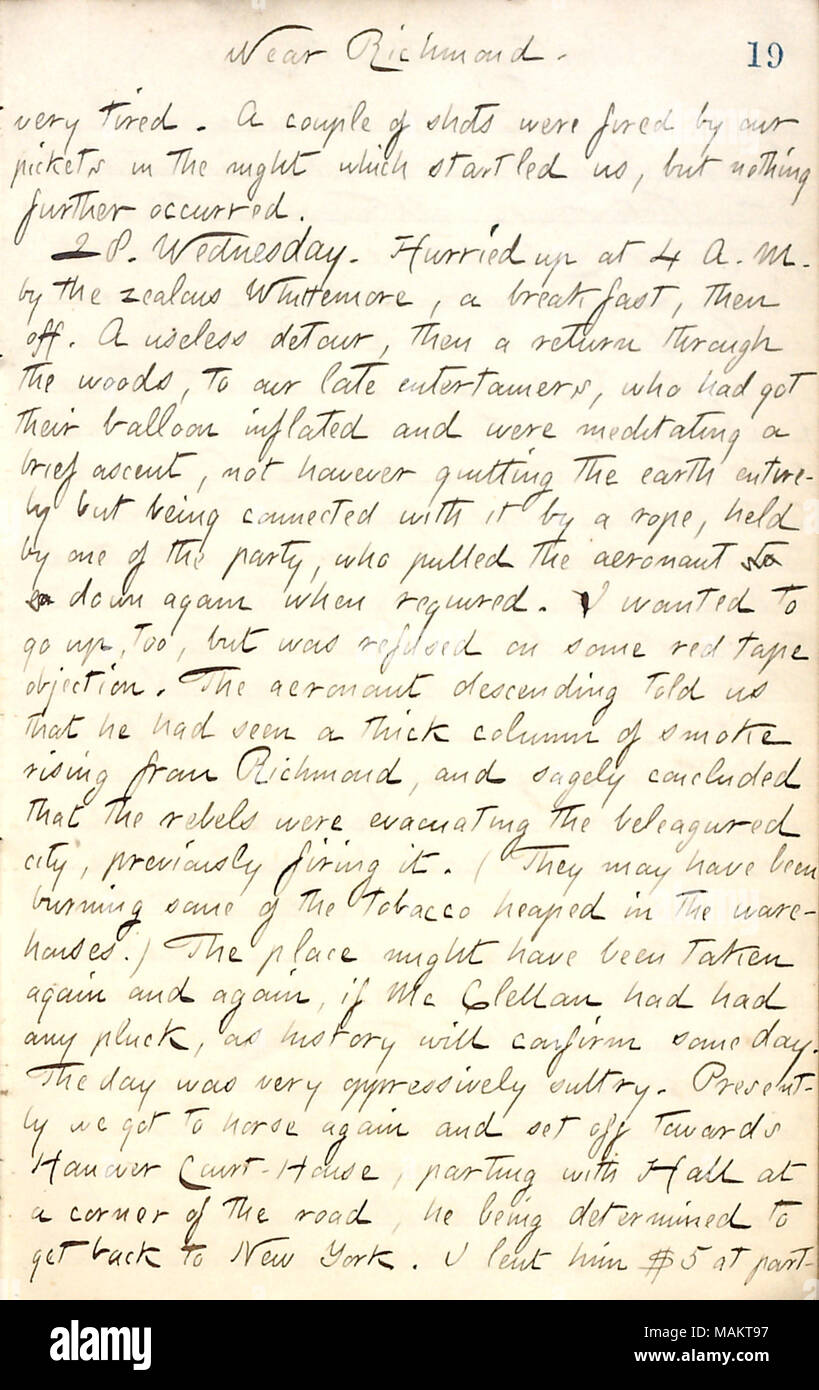 Near Richmond. 19
very tired. A couple of shots were fired by our
pickets in the night which startled us, but nothing
further occurred.
28. Wednesday. Hurried up at 4 A.M.
by the zealous Whittemore, a breakfast, then
off. A useless detour, then a return through
the woods, to our late entertainers, who had got
their balloon inflated and were meditating a
brief ascent, not however quitting the earth entire-
ly but being connected with it by a rope, held
by one of the party, who pulled the aeronaut
down again when required. I wanted to
go up, too, but was refused on some red tape
objection. The aeronaut descending told us
that he had seen a thick column of smoke
rising from Richmond, and sagely concluded
that the rebels were evacuating the beleagured
city, previously firing it. (They may have been
burning some of the tobacco heaped in the ware-
houses.) The place might have been taken
again and again, if Mc Clellan had had
any pluck, as history will confirm some day.
The day was very oppressively sultry. Present-
ly we got to horse again and set off towards
Hanover Court-House, parting with Hall at
a corner of the road, he being determined to
get back to New York. I lent him $5 at part-
alamy
Image ID: MAKT97
www.alamy.com